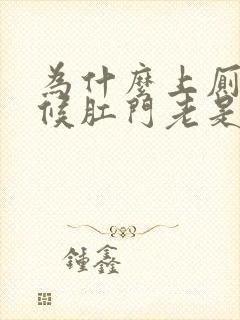 為什麼上厠
候肛門老是
鍾鑫